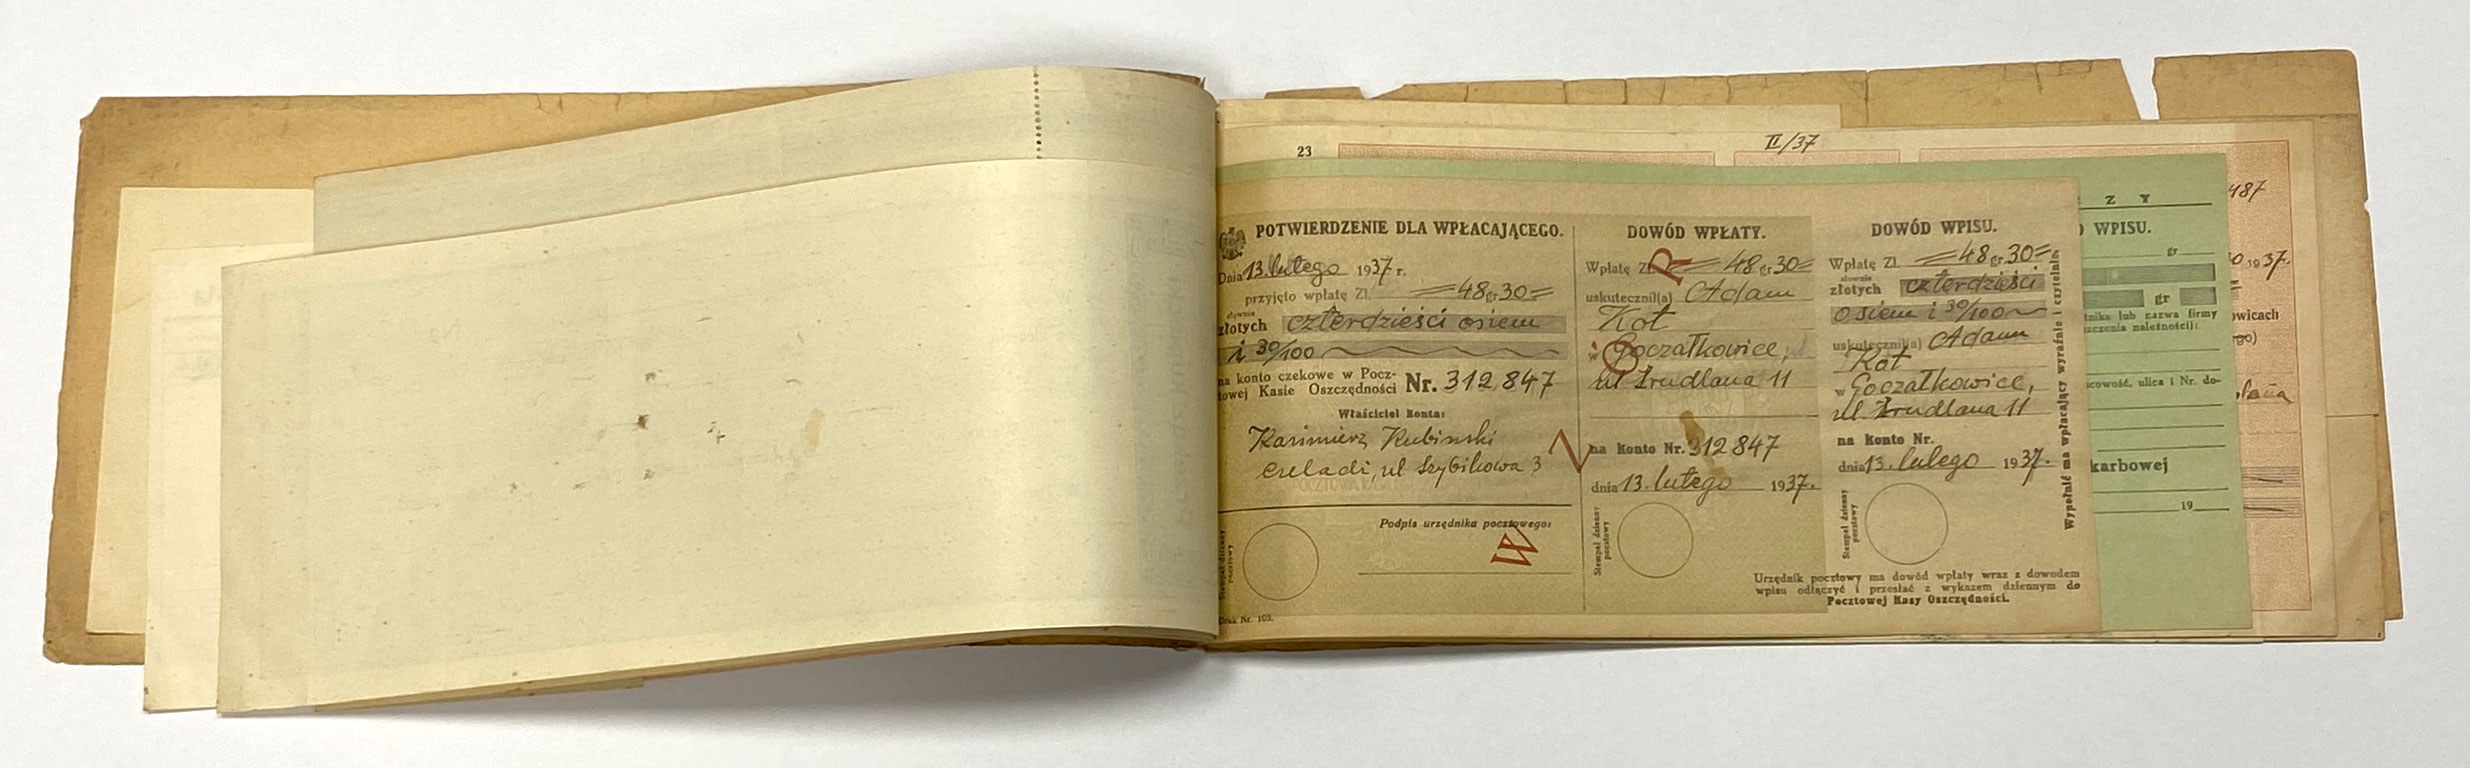 23
II/37
POTWIERDZENIE DLA WPŁACAJĄCEGO.
Dnia 13. lutego 1937 r.
przyjęto wpłatę Zł. =48 gr 30=
słownie
złotych czterdzieści osiem
i 30/100
na konto czekowe w Pocz-
towej Kasie Oszczędności Nr. 312,847
Właściciel konta:
Kazimierz Kubinski
Czeladź, ul Szybikowa 3
Podpis urzędnika pocztowego:
Stempel dzienny
pocztowy
Druk Nr. 103.
DOWÓD WPŁATY.
Wpłatę Zł. =48 gr 30=
uskutecznił(a) Adam
Kot
w Goczałkowice,
ul Źrudlana 11
na Konto Nr. 312847
dnia 13. lutego 1937.
Stempel dzienny
pocztowy
R
O
Z
W
DOWÓD WPISU.
Wpłatę Zł. =48 gr 30=
słownie
złotych czterdzieści
osiem i 30/100
uskutecznił(a) Adam
Kot
w Goczałkowice,
ul. Źrudlana 11
na Konto Nr.
dnia 13. lutego 1937.
Stempel dzienny
pocztowy
Wypełnić ma wpłacający wyraźnie i czytelnie.
Urzędnik pocztowy ma dowód wpłaty wraz z dowodem
wpisu odłączyć i przesłać z wykazem dziennym do
Pocztowej Kasy Oszczędności.
Z Y
WPISU.
gr
gr
nika lub nazwa firmy
szczenia należności):
cowość, ulica i Nr. do-
karbowej
19
487
1937.
owicach
go)
lana